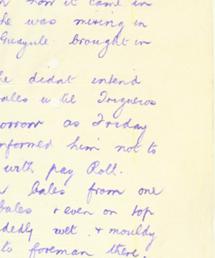 how it came in
he was mixing in
Guayule brought in
he didnt intend
bales u til Trigueros
orrow as Friday
nformed him not to
with pay Roll.
bales from one
bales + even on top
dedly wet + mouldy
to foreman there.